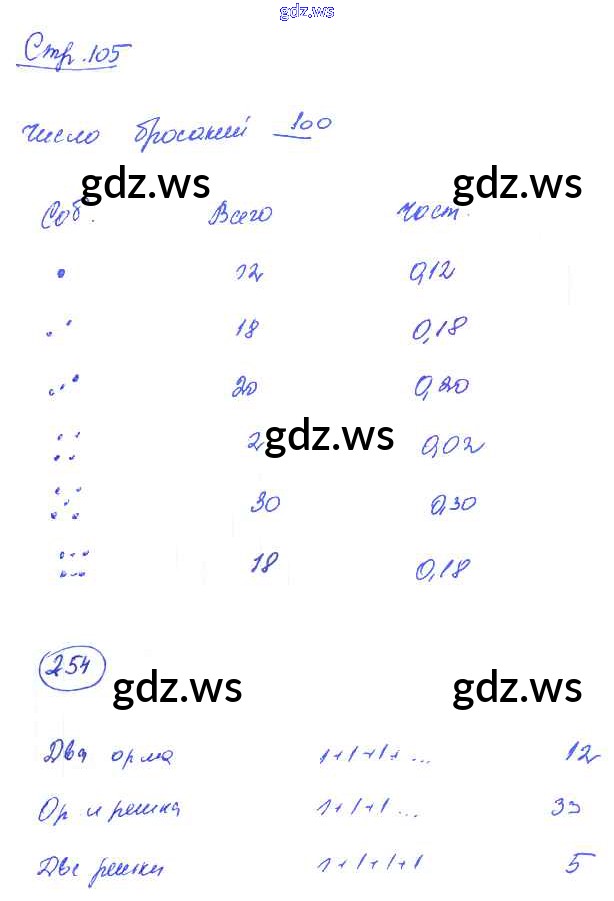 gdz.ws
Стр. 105
Число бросаний 100
gdz.ws gdz.ws
Соб. Всего Част.
12 0,12
18 0,18
20 0,20
gdz.ws
2 0,02
30 0,30
18 0,18
254
gdz.ws gdz.ws
Два орла 1+1+1+... 12
Ор и решка 1+1+1... 33
Две решки 1+1+1+1 5